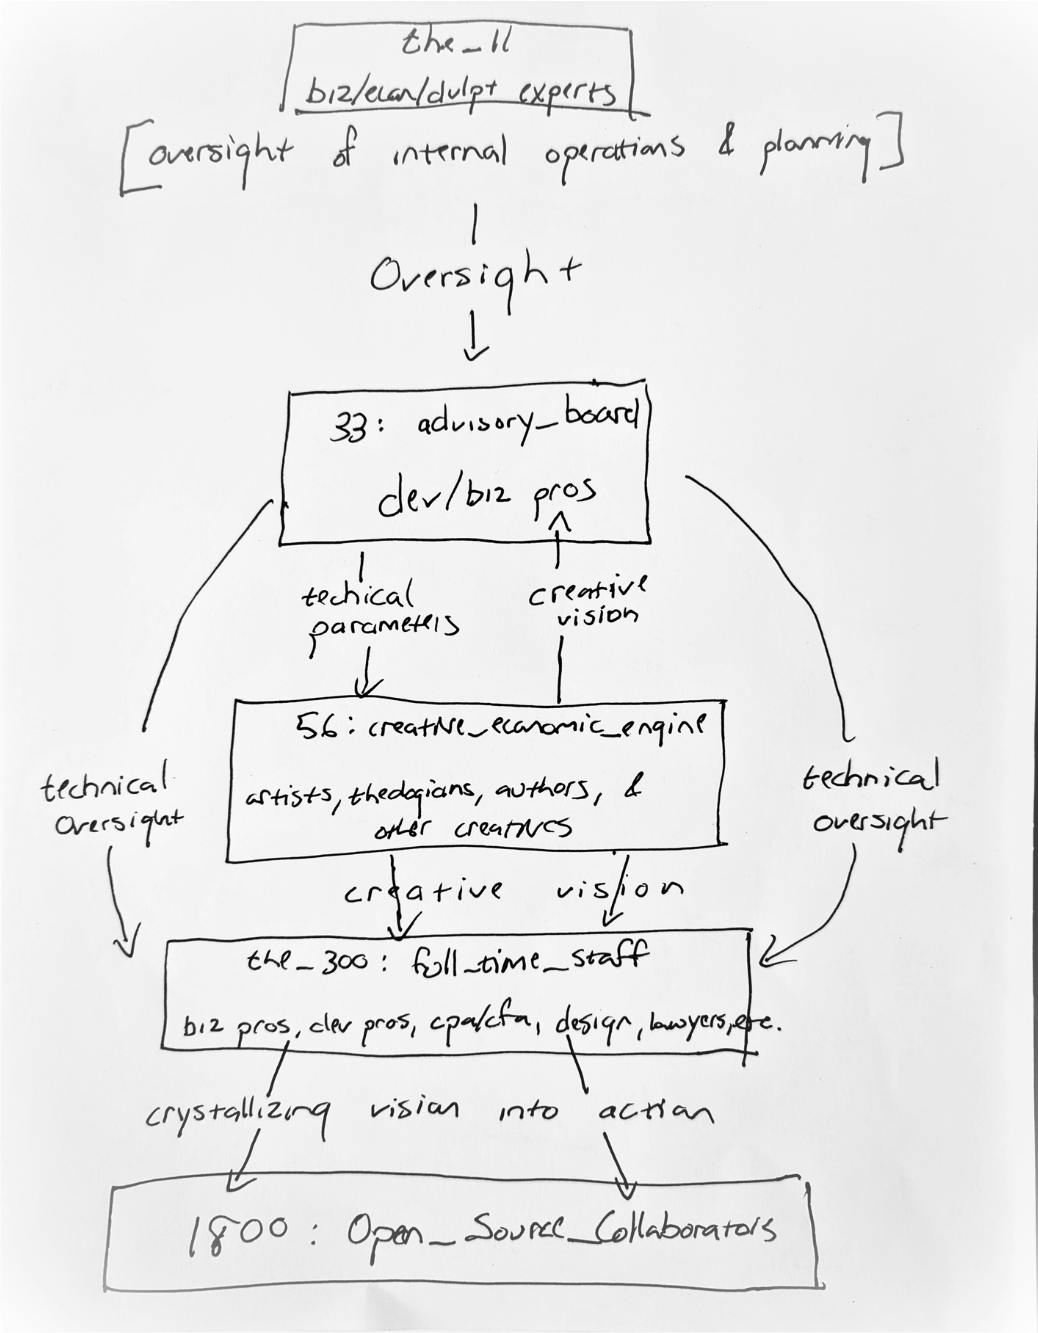 the_11
biz/econ/dvlpt experts
[oversight of internal operations & planning]
Oversight
33: advisory_board
dev/biz pros
techical
parameters
creative
vision
56: creative_economic_engine
artists, theologians, authors, &
other creatives
technical
oversight
technical
oversight
creative vision
the_300: full_time_staff
biz pros, dev pros, cpa/cfa, design, lawyers, etc.
crystallizing vision into action
1800: Open_Source_Collaborators